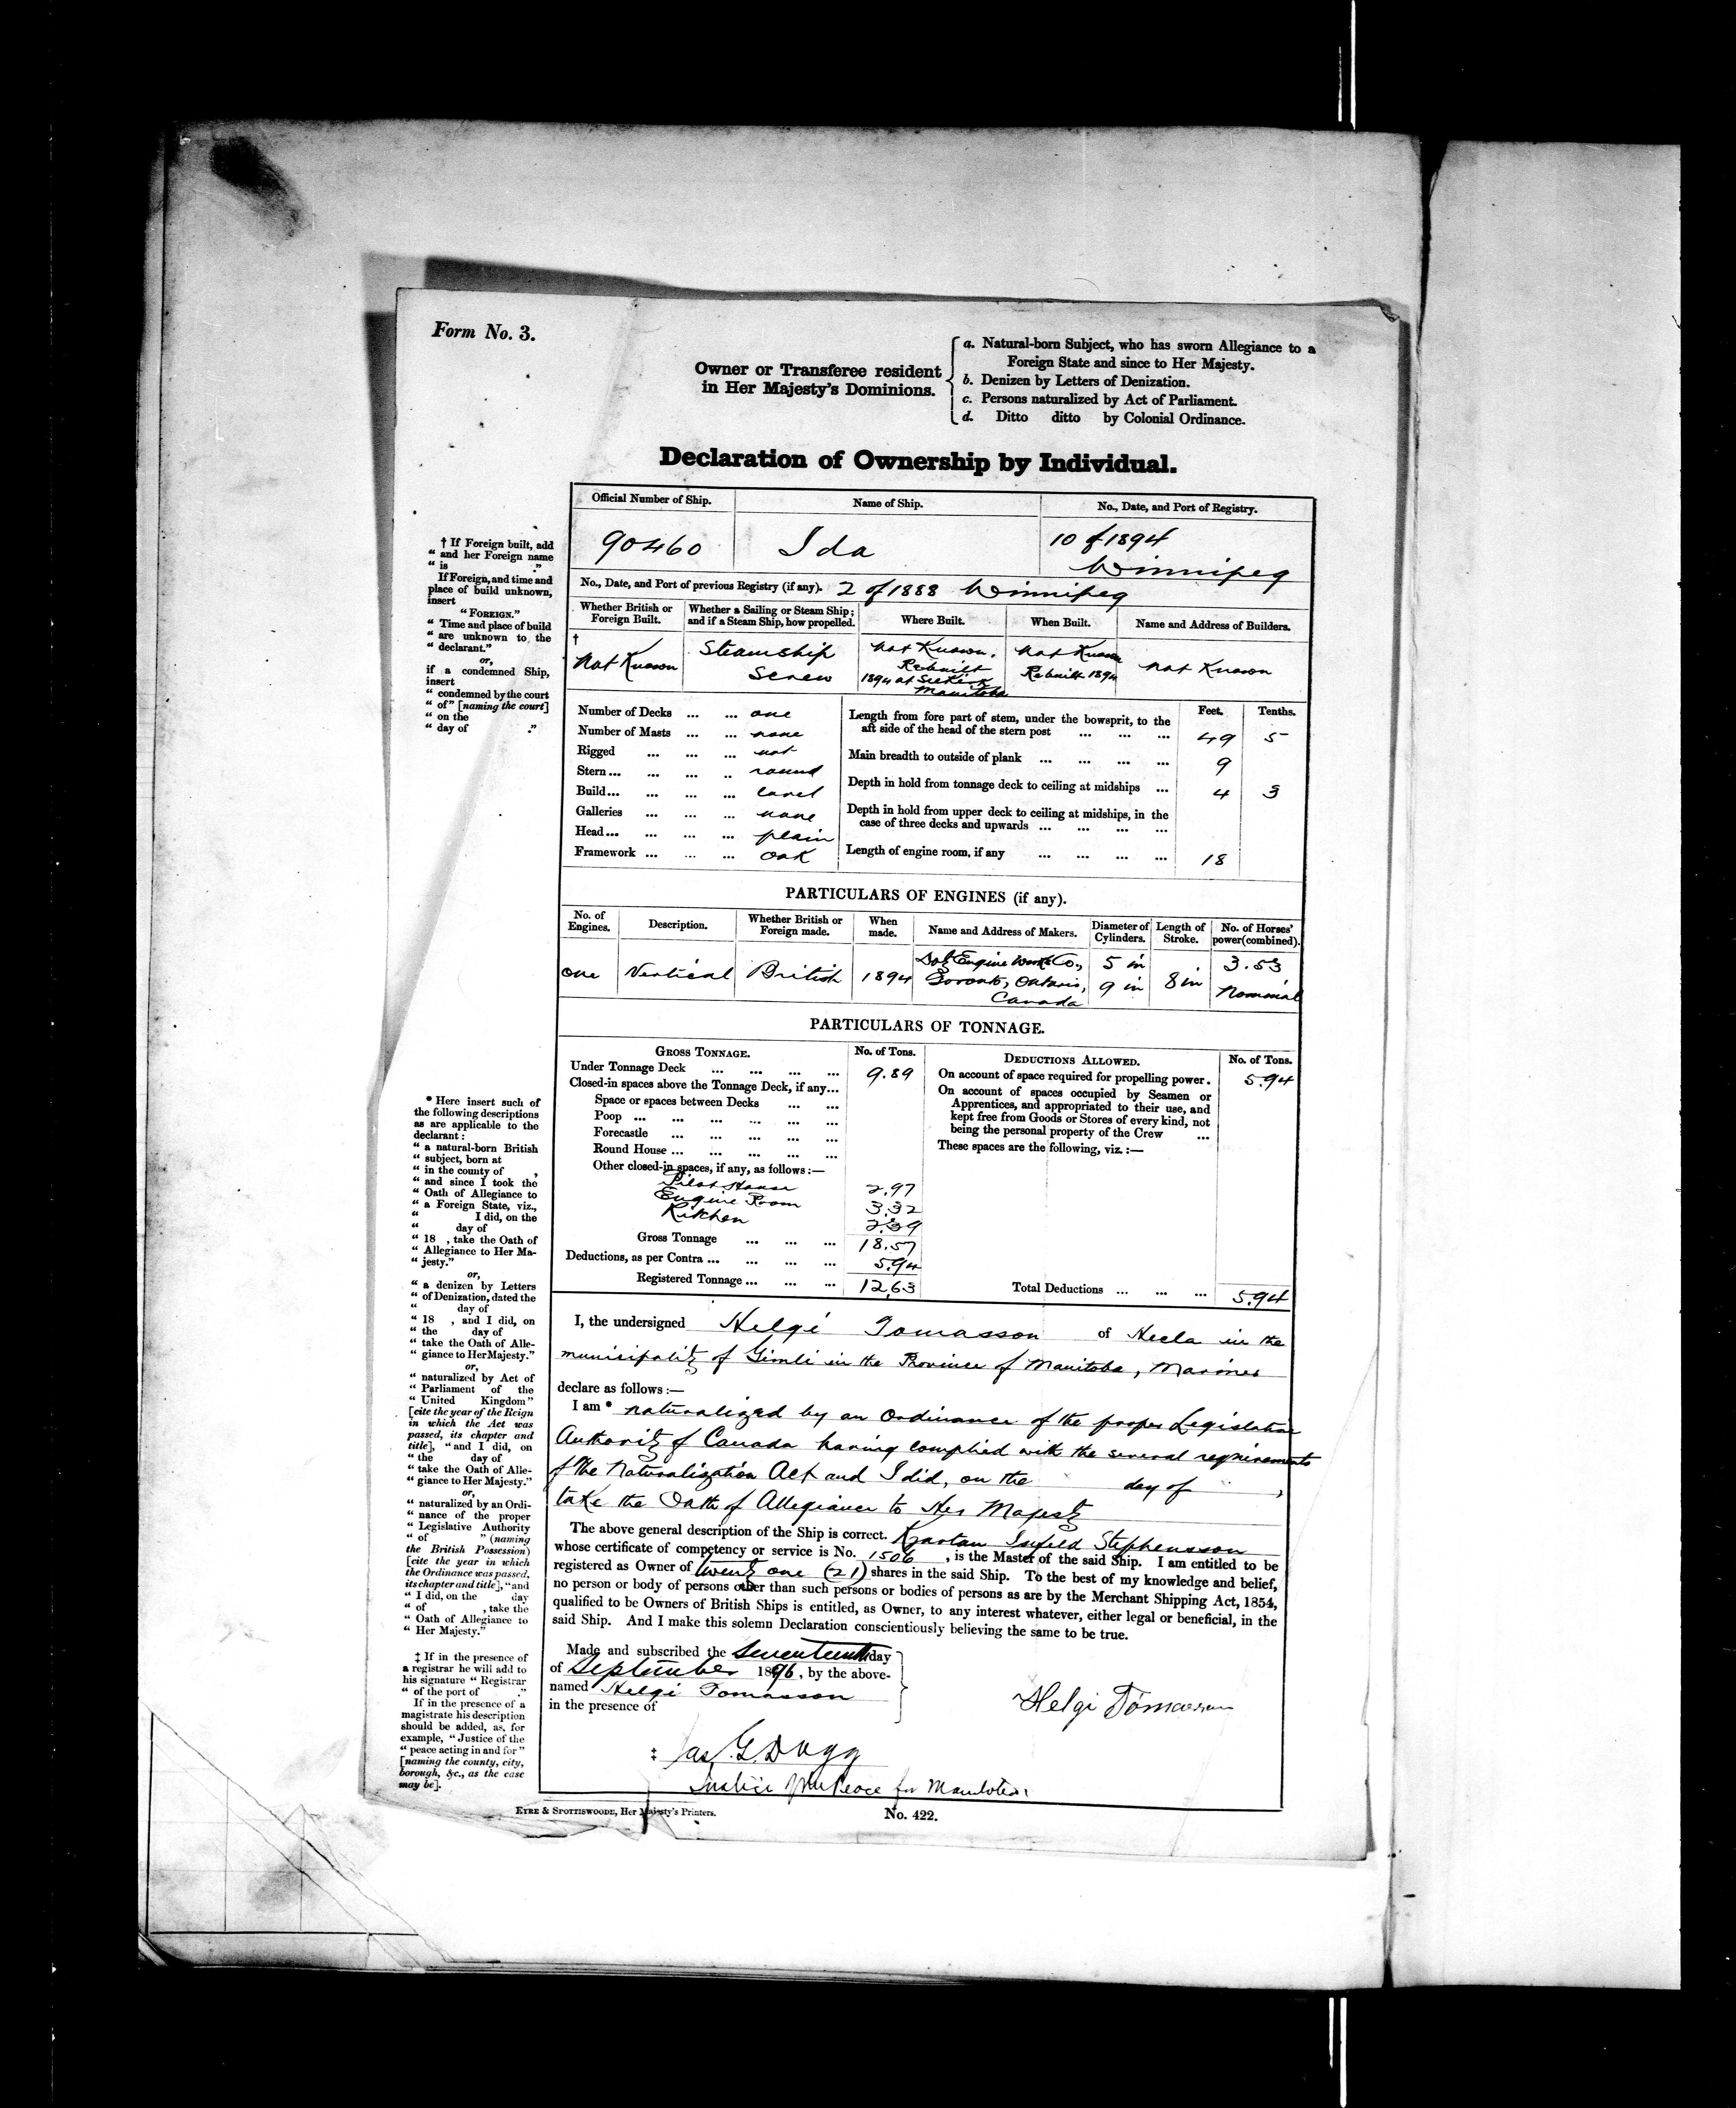 Form No. 3.
Owner or Transferee resident
in Her Majesty's Dominions.
a. Natural-born Subject, who has sworn Allegiance to a
Foreign State and since to Her Majesty.
b. Denizen by Letters of Denization.
c. Persons naturalized by Act of Parliament.
d. Ditto ditto by Colonial Ordinance.
Declaration of Ownership by Individual.
Official Number of Ship. Name of Ship. No., Date, and Port of Registry.
90460 Ida 10 of 1894
Winnipeg
No., Date, and Port of previous Registry (if any). 2 of 1888 Winnipeg
Whether British or Foreign Built. Whether a Sailing or Steam Ship; and if a Steam Ship, how propelled. Where Built. When Built. Name and Address of Builders.
†
Not Known Steamship Screw Not Known. Rebuilt 1894 at Selkirk Manitoba Not Known Rebuilt 1894 Not Known
Number of Decks ... ... one
Number of Masts ... ... none
Rigged ... ... ... not
Stern ... ... ... .. round
Build ... ... ... ... carvel
Galleries ... ... ... none
Head ... ... ... ... plain
Framework ... ... ... Oak
Feet. Tenths.
Length from fore part of stem, under the bowsprit, to the
aft side of the head of the stern post ... ... ... 49 5
Main breadth to outside of plank ... ... ... ... 9
Depth in hold from tonnage deck to ceiling at midships ... 4 3
Depth in hold from upper deck to ceiling at midships, in the
case of three decks and upwards ... ... ... ...
Length of engine room, if any ... ... ... ... 18
PARTICULARS OF ENGINES (if any).
No. of Engines. Description. Whether British or Foreign made. When made. Name and Address of Makers. Diameter of Cylinders. Length of Stroke. No. of Horses' power (combined).
one Vertical British 1894 Engine Works Co., Toronto, Ontario, Canada 5 in 9 in 8 in 3.53 Nominal
PARTICULARS OF TONNAGE.
GROSS TONNAGE. No. of Tons.
Under Tonnage Deck ... ... ... ... 9.89
Closed-in spaces above the Tonnage Deck, if any...
Space or spaces between Decks ... ...
Poop ... ... ... ... ... ...
Forecastle ... ... ... ... ...
Round House ... ... ... ... ...
Other closed-in spaces, if any, as follows:—
Pilot House 2.97
Engine Room 3.32
Kitchen 2.39
Gross Tonnage ... ... ... 18.57
Deductions, as per Contra ... ... ... ... 5.94
Registered Tonnage ... ... ... 12.63
DEDUCTIONS ALLOWED. No. of Tons.
On account of space required for propelling power. 5.94
On account of spaces occupied by Seamen or
Apprentices, and appropriated to their use, and
kept free from Goods or Stores of every kind, not
being the personal property of the Crew ...
These spaces are the following, viz.:—
Total Deductions ... ... ... 5.94
I, the undersigned Helgi Tomasson of Hecla in the
municipality of Gimli in the Province of Manitoba, Mariner
declare as follows:—
I am * naturalized by an Ordinance of the proper Legislative
Authority of Canada having complied with the several requirements
of the Naturalization Act and I did, on the day of ,
take the Oath of Allegiance to Her Majesty
The above general description of the Ship is correct. Kjartan Isfeld Stephensson
whose certificate of competency or service is No. 1506 , is the Master of the said Ship. I am entitled to be
registered as Owner of twenty one (21) shares in the said Ship. To the best of my knowledge and belief,
no person or body of persons other than such persons or bodies of persons as are by the Merchant Shipping Act, 1854,
qualified to be Owners of British Ships is entitled, as Owner, to any interest whatever, either legal or beneficial, in the
said Ship. And I make this solemn Declaration conscientiously believing the same to be true.
Made and subscribed the Seventeenth day
of September 1896, by the above-
named Helgi Tomasson
in the presence of
Helgi Tómasson
‡ Jas. G. Dagg
Justice of the Peace for Manitoba
EYRE & SPOTTISWOODE, Her Majesty's Printers. No. 422.
† If Foreign built, add
" and her Foreign name
" is ."
If Foreign, and time and
place of build unknown,
insert
"FOREIGN."
" Time and place of build
" are unknown to the
" declarant."
or,
if a condemned Ship,
insert
" condemned by the court
" of" [naming the court]
" on the
" day of ."
* Here insert such of
the following descriptions
as are applicable to the
declarant:
" a natural-born British
" subject, born at
" in the county of ,
" and since I took the
" Oath of Allegiance to
" a Foreign State, viz.,
" I did, on the
" day of
" 18 , take the Oath of
" Allegiance to Her Ma-
" jesty."
or,
" a denizen by Letters
" of Denization, dated the
" day of
" 18 , and I did, on
" the day of
" take the Oath of Alle-
" giance to Her Majesty."
or,
" naturalized by Act of
" Parliament of the
" United Kingdom"
[cite the year of the Reign
in which the Act was
passed, its chapter and
title], "and I did, on
" the day of
" take the Oath of Alle-
" giance to Her Majesty."
or,
" naturalized by an Ordi-
" nance of the proper
" Legislative Authority
" of " (naming
the British Possession)
[cite the year in which
the Ordinance was passed,
its chapter and title], "and
" I did, on the day
" of , take the
" Oath of Allegiance to
" Her Majesty."
‡ If in the presence of
a registrar he will add to
his signature " Registrar
" of the port of ."
If in the presence of a
magistrate his description
should be added, as, for
example, "Justice of the
" peace acting in and for"
[naming the county, city,
borough, &c., as the case
may be].